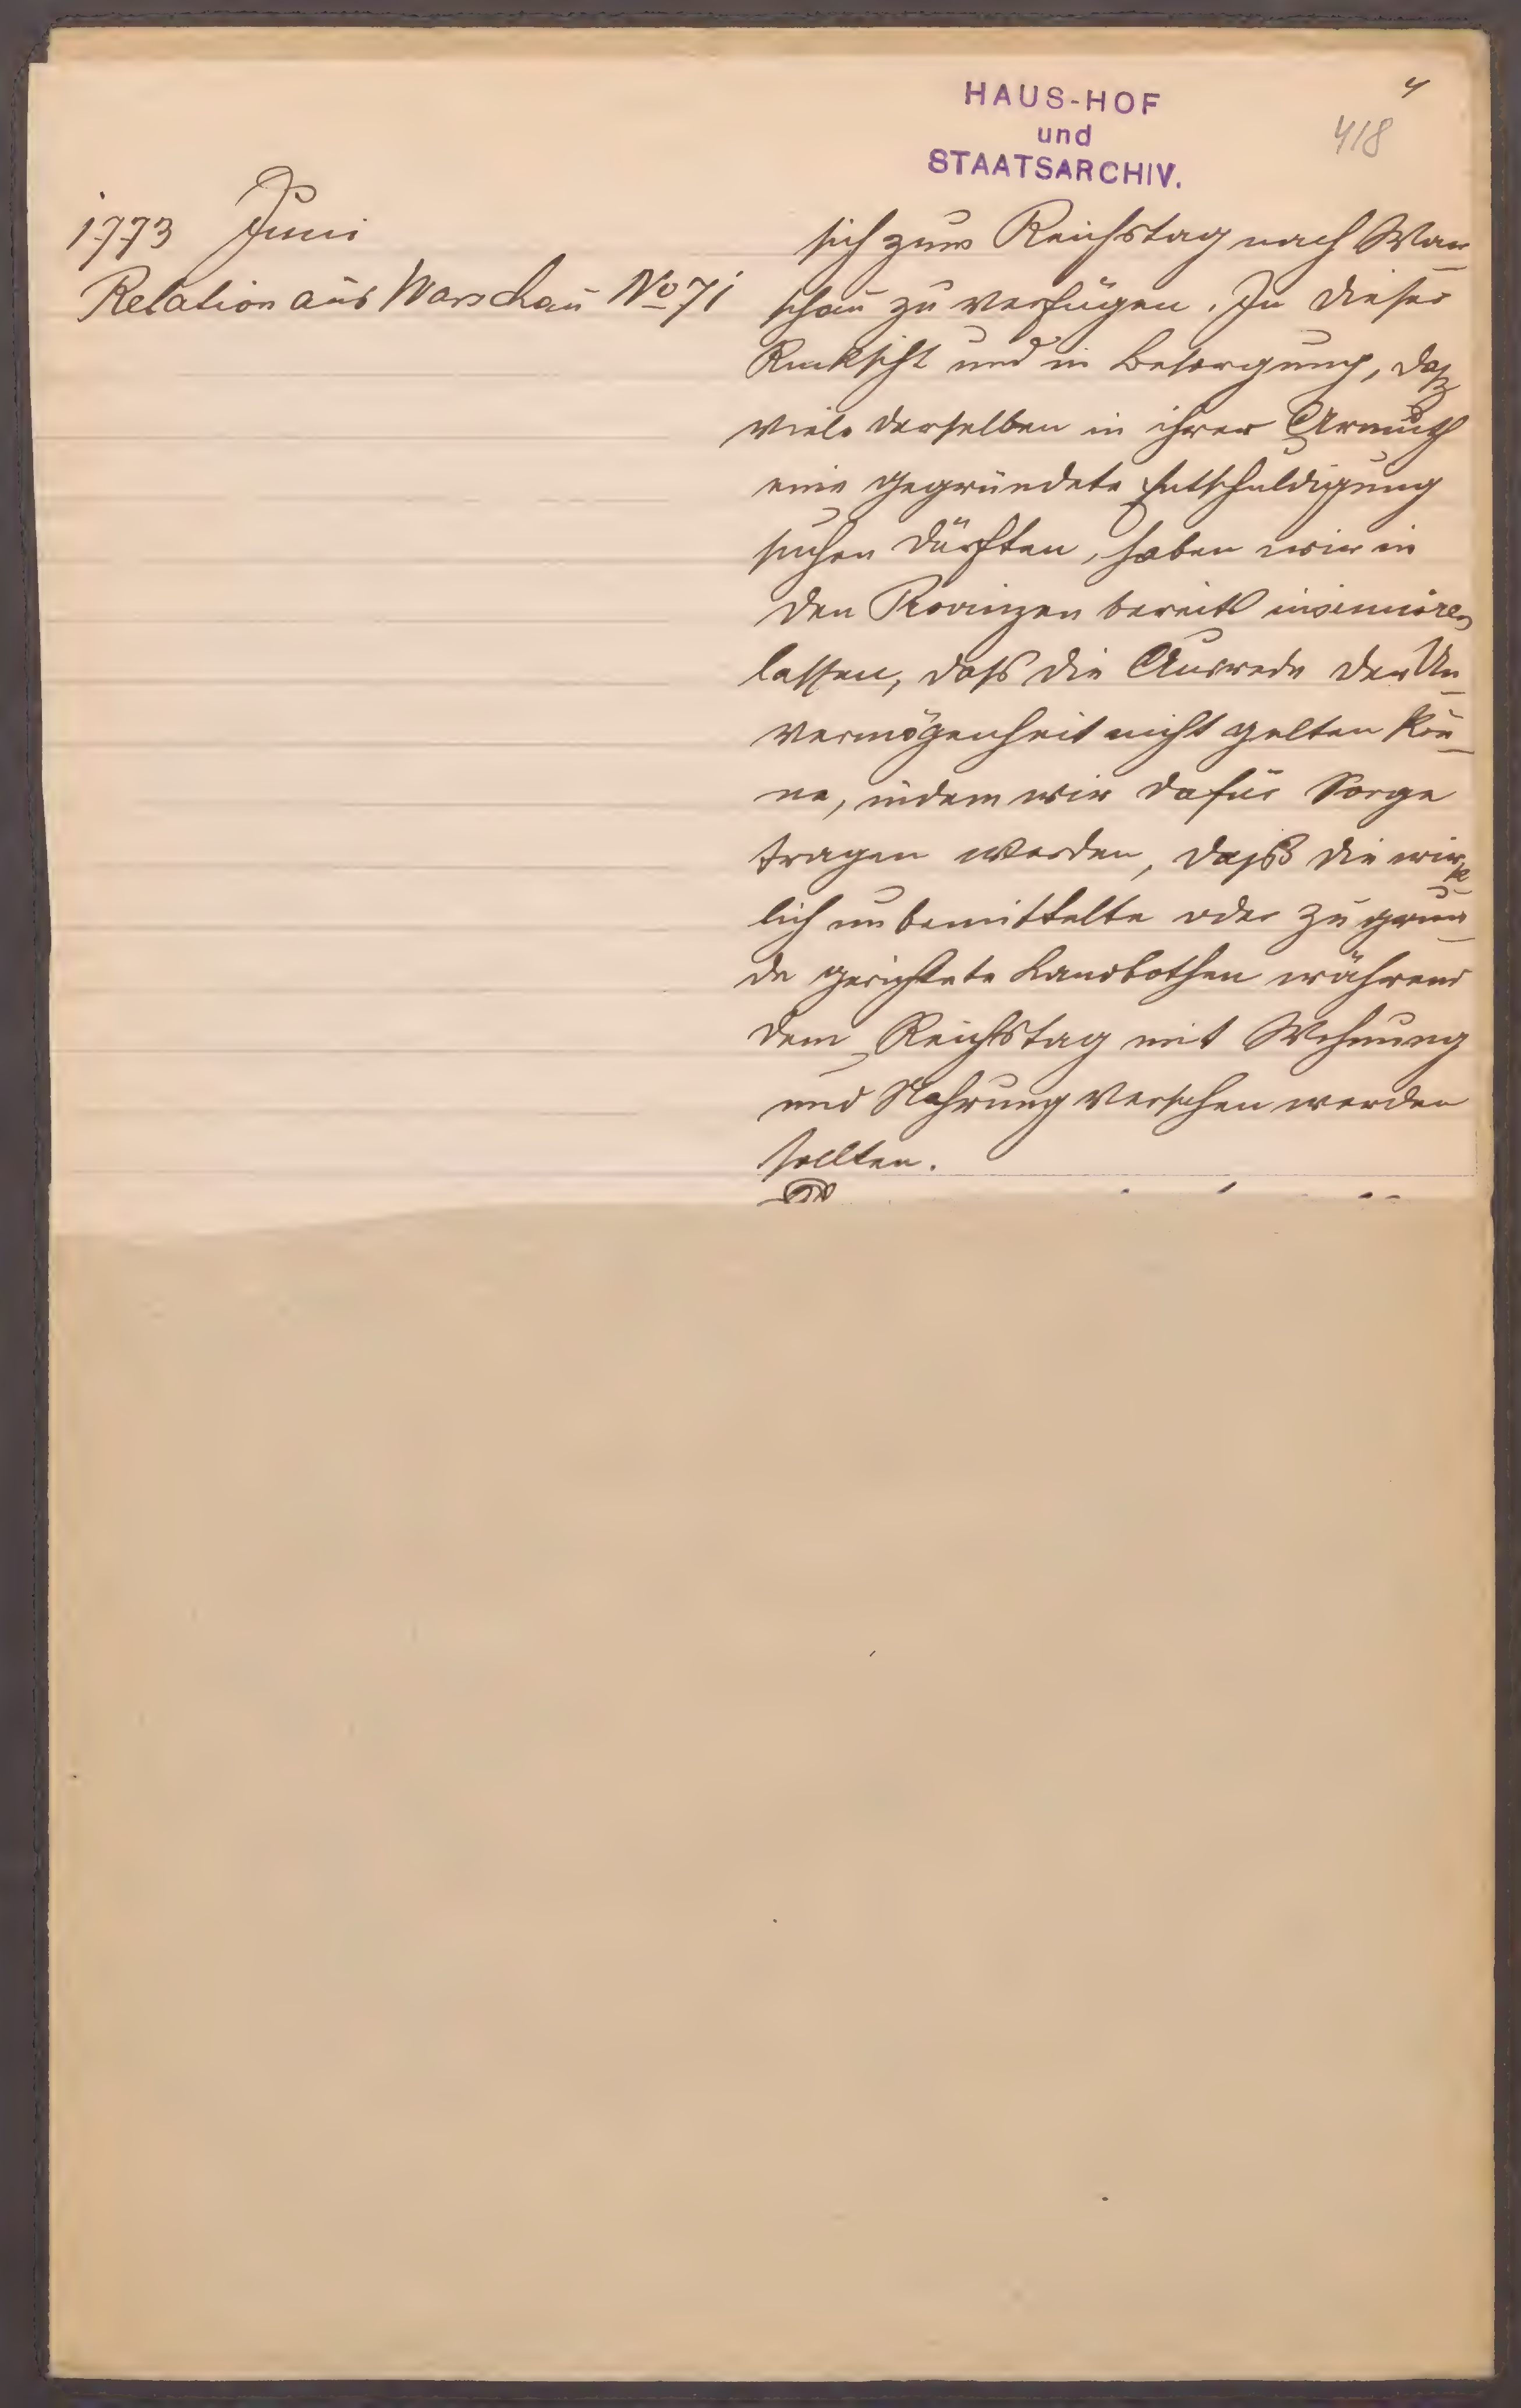 HAUS-HOF
und
STAATSARCHIV.
4
418
1773 Juni
Relation aus Warschau No 71
sich zum Reichstag nach War-
schau zu verfügen. In dieser
Rucksicht und in Besorgung, daß
viele derselben in ihrer Armuth
eine gegründete Entschuldigung
suchen dürften, haben wir in
den Provinzen bereits insinuiren
lassen, dass die Ausrede der Un-
vermögenheit nicht gelten kön-
ne, indem wir dafür Sorge
tragen werden, dass die wirk-
lich unbemittelte oder zu grun-
de gerichtete Landbothen während
dem Reichstag mit Wohnung
und Nahrung versehen werden
sollten.